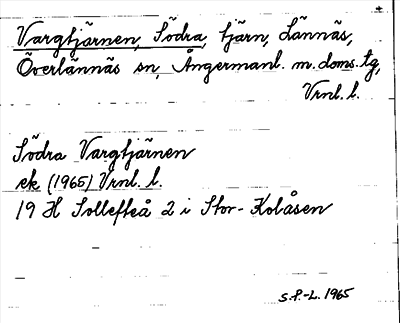 Vargtjärnen, Södra, tjärn, Lännäs,
Överlännäs sn, Ångermanl. m. doms. tg,
Vrnl. l.
Södra Vargtjärnen
ek (1965) Vrnl. l.
19 H Sollefteå 2 i Stor-Kolåsen
S.P.-L. 1965